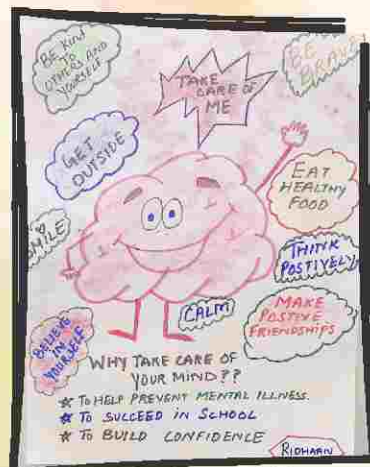 BE KIND
TO
OTHERS AND
YOURSELF
BE
BRAVE!
TAKE
CARE OF
ME
GET
OUTSIDE
EAT
HEALTHY
FOOD
SMILE
THINK
POSTIVELY
CALM
MAKE
POSTIVE
FRIENDSHIPS
BELIEVE
IN
YOURSELF
WHY TAKE CARE OF
YOUR MIND??
☆ TO HELP PREVENT MENTAL ILLNESS.
☆ TO SUCCEED IN SCHOOL
☆ TO BUILD CONFIDENCE
RIDHAAN